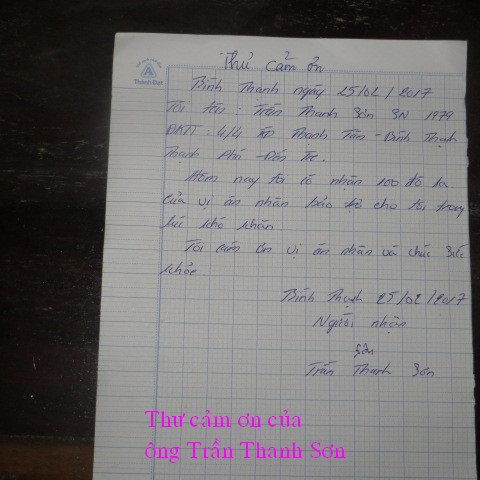 Thanh Đạt
Thư cảm ơn
Bình Thạnh ngày 25/02/2017
Tôi tên: Trần Thanh Sơn SN 1979
ĐKTT: 4/4 Thanh Tân - Bình Thạnh
Thạnh Phú - Bến Tre.
Hôm nay tôi có nhận 100 đô la
của vị ân nhân bảo bộ cho tôi trong
lúc khó khăn
Tôi cảm ơn vị ân nhân và chúc sức
khỏe
Bình Thạnh 25/02/2017
Người nhận
Sơn
Trần Thanh Sơn
Thư cảm ơn của
ông Trần Thanh Sơn